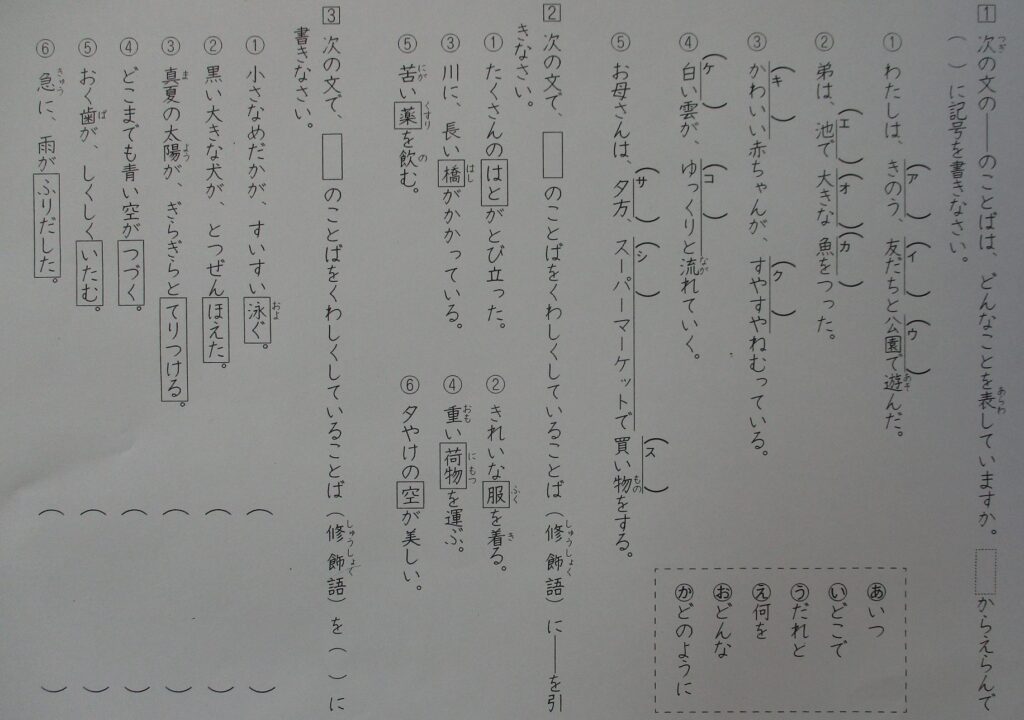 1 次の文の――のことばは、どんなことを表していますか。□からえらんで
( )に記号を書きなさい。
① わたしは、きのう、友だちと公園で遊んだ。
(ア) (イ) (ウ)
② 弟は、池で大きな魚をつった。
(エ) (オ) (カ)
③ かわいい赤ちゃんが、すやすやねむっている。
(キ) (ク)
④ 白い雲が、ゆっくりと流れていく。
(ケ) (コ)
⑤ お母さんは、夕方、スーパーマーケットで買い物をする。
(サ) (シ) (ス)
あ いつ
い どこで
う だれと
え 何を
お どんな
か どのように
2 次の文で、□のことばをくわしくしていることば(修飾語)に――を引
きなさい。
① たくさんのはとがとび立った。
② きれいな服を着る。
③ 川に、長い橋がかかっている。
④ 重い荷物を運ぶ。
⑤ 苦い薬を飲む。
⑥ 夕やけの空が美しい。
3 次の文で、□のことばをくわしくしていることば(修飾語)を( )に
書きなさい。
① 小さなめだかが、すいすい泳ぐ。( )
② 黒い大きな犬が、とつぜんほえた。( )
③ 真夏の太陽が、ぎらぎらとてりつける。( )
④ どこまでも青い空がつづく。( )
⑤ おく歯が、しくしくいたむ。( )
⑥ 急に、雨がふりだした。( )